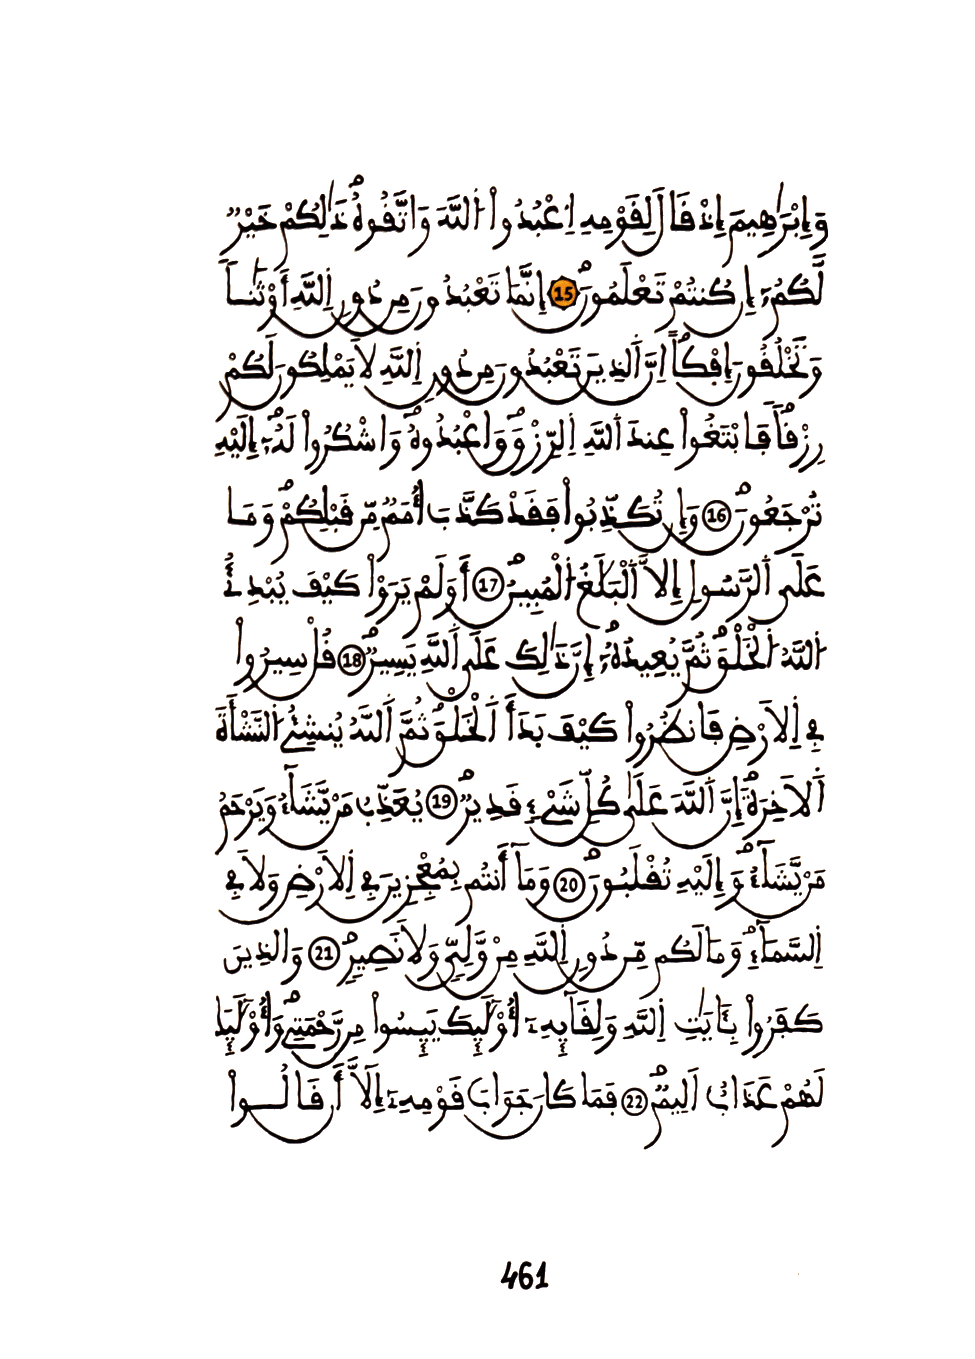 وَإِبْرَٰهِيمَ إِذْ قَالَ لِقَوْمِهِ اِ۟عْبُدُوا۟ اُ۬للَّهَ وَاتَّقُوهُۖ ذَٰلِكُمْ خَيْرٞ
لَّكُمُۥٓ إِن كُنتُمْ تَعْلَمُونَۖ 15 إِنَّمَا تَعْبُدُونَ مِن دُونِ اِ۬للَّهِ أَوْثَٰناٗ
وَتَخْلُقُونَ إِفْكاًۚ اِنَّ اَ۬لذِينَ تَعْبُدُونَ مِن دُونِ اِ۬للَّهِ لَا يَمْلِكُونَ لَكُمْ
رِزْقاٗۖ فَابْتَغُوا۟ عِندَ اَ۬للَّهِ اِ۬لرِّزْقَۖ وَاعْبُدُوهُۖ وَاشْكُرُوا۟ لَهُۥٓۖ إِلَيْهِ
تُرْجَعُونَۖ 16 وَإِن تُكَذِّبُوا۟ فَقَدْ كَذَّبَ أُمَمٞ مِّن قَبْلِكُمْۖ وَمَا
عَلَى اَ۬لرَّسُولِ إِلَّا اَ۬لْبَلَٰغُ اُ۬لْمُبِينُۖ 17 أَوَلَمْ يَرَوْا۟ كَيْفَ يُبْدِئُ
اُ۬للَّهُ اُ۬لْخَلْقَۖ ثُمَّ يُعِيدُهُۥٓۖ إِنَّ ذَٰلِكَ عَلَى اَ۬للَّهِ يَسِيرٞۖ 18 قُلْ سِيرُوا۟
فِي اِ۬لَارْضِ فَانظُرُوا۟ كَيْفَ بَدَأَ اَ۬لْخَلْقَۖ ثُمَّ اَ۬للَّهُ يُنشِئُ اُ۬لنَّشْأَةَ
اَ۬لَاخِرَةَۖ إِنَّ اَ۬للَّهَ عَلَىٰ كُلِّ شَےْءٖ قَدِيرٞۖ 19 يُعَذِّبُ مَنْ يَّشَآءُ وَيَرْحَمُ
مَنْ يَّشَآءُۖ وَإِلَيْهِ تُقْلَبُونَۖ 20 وَمَآ أَنتُم بِمُعْجِزِينَ فِي اِ۬لَارْضِ وَلَا فِي
اِ۬لسَّمَآءِۖ وَمَا لَكُم مِّن دُونِ اِ۬للَّهِ مِنْ وَّلِيّٖ وَلَا نَصِيرٖۖ 21 وَالذِينَ
كَفَرُوا۟ بِـَٔايَٰتِ اِ۬للَّهِ وَلِقَآئِهِۦٓ أُوْلَٰٓئِكَ يَئِسُوا۟ مِن رَّحْمَتِےۖ وَأُوْلَٰٓئِكَ
لَهُمْ عَذَابٌ اَلِيمٞۖ 22 فَمَا كَانَ جَوَابَ قَوْمِهِۦٓ إِلَّآ أَن قَالُوا۟
461